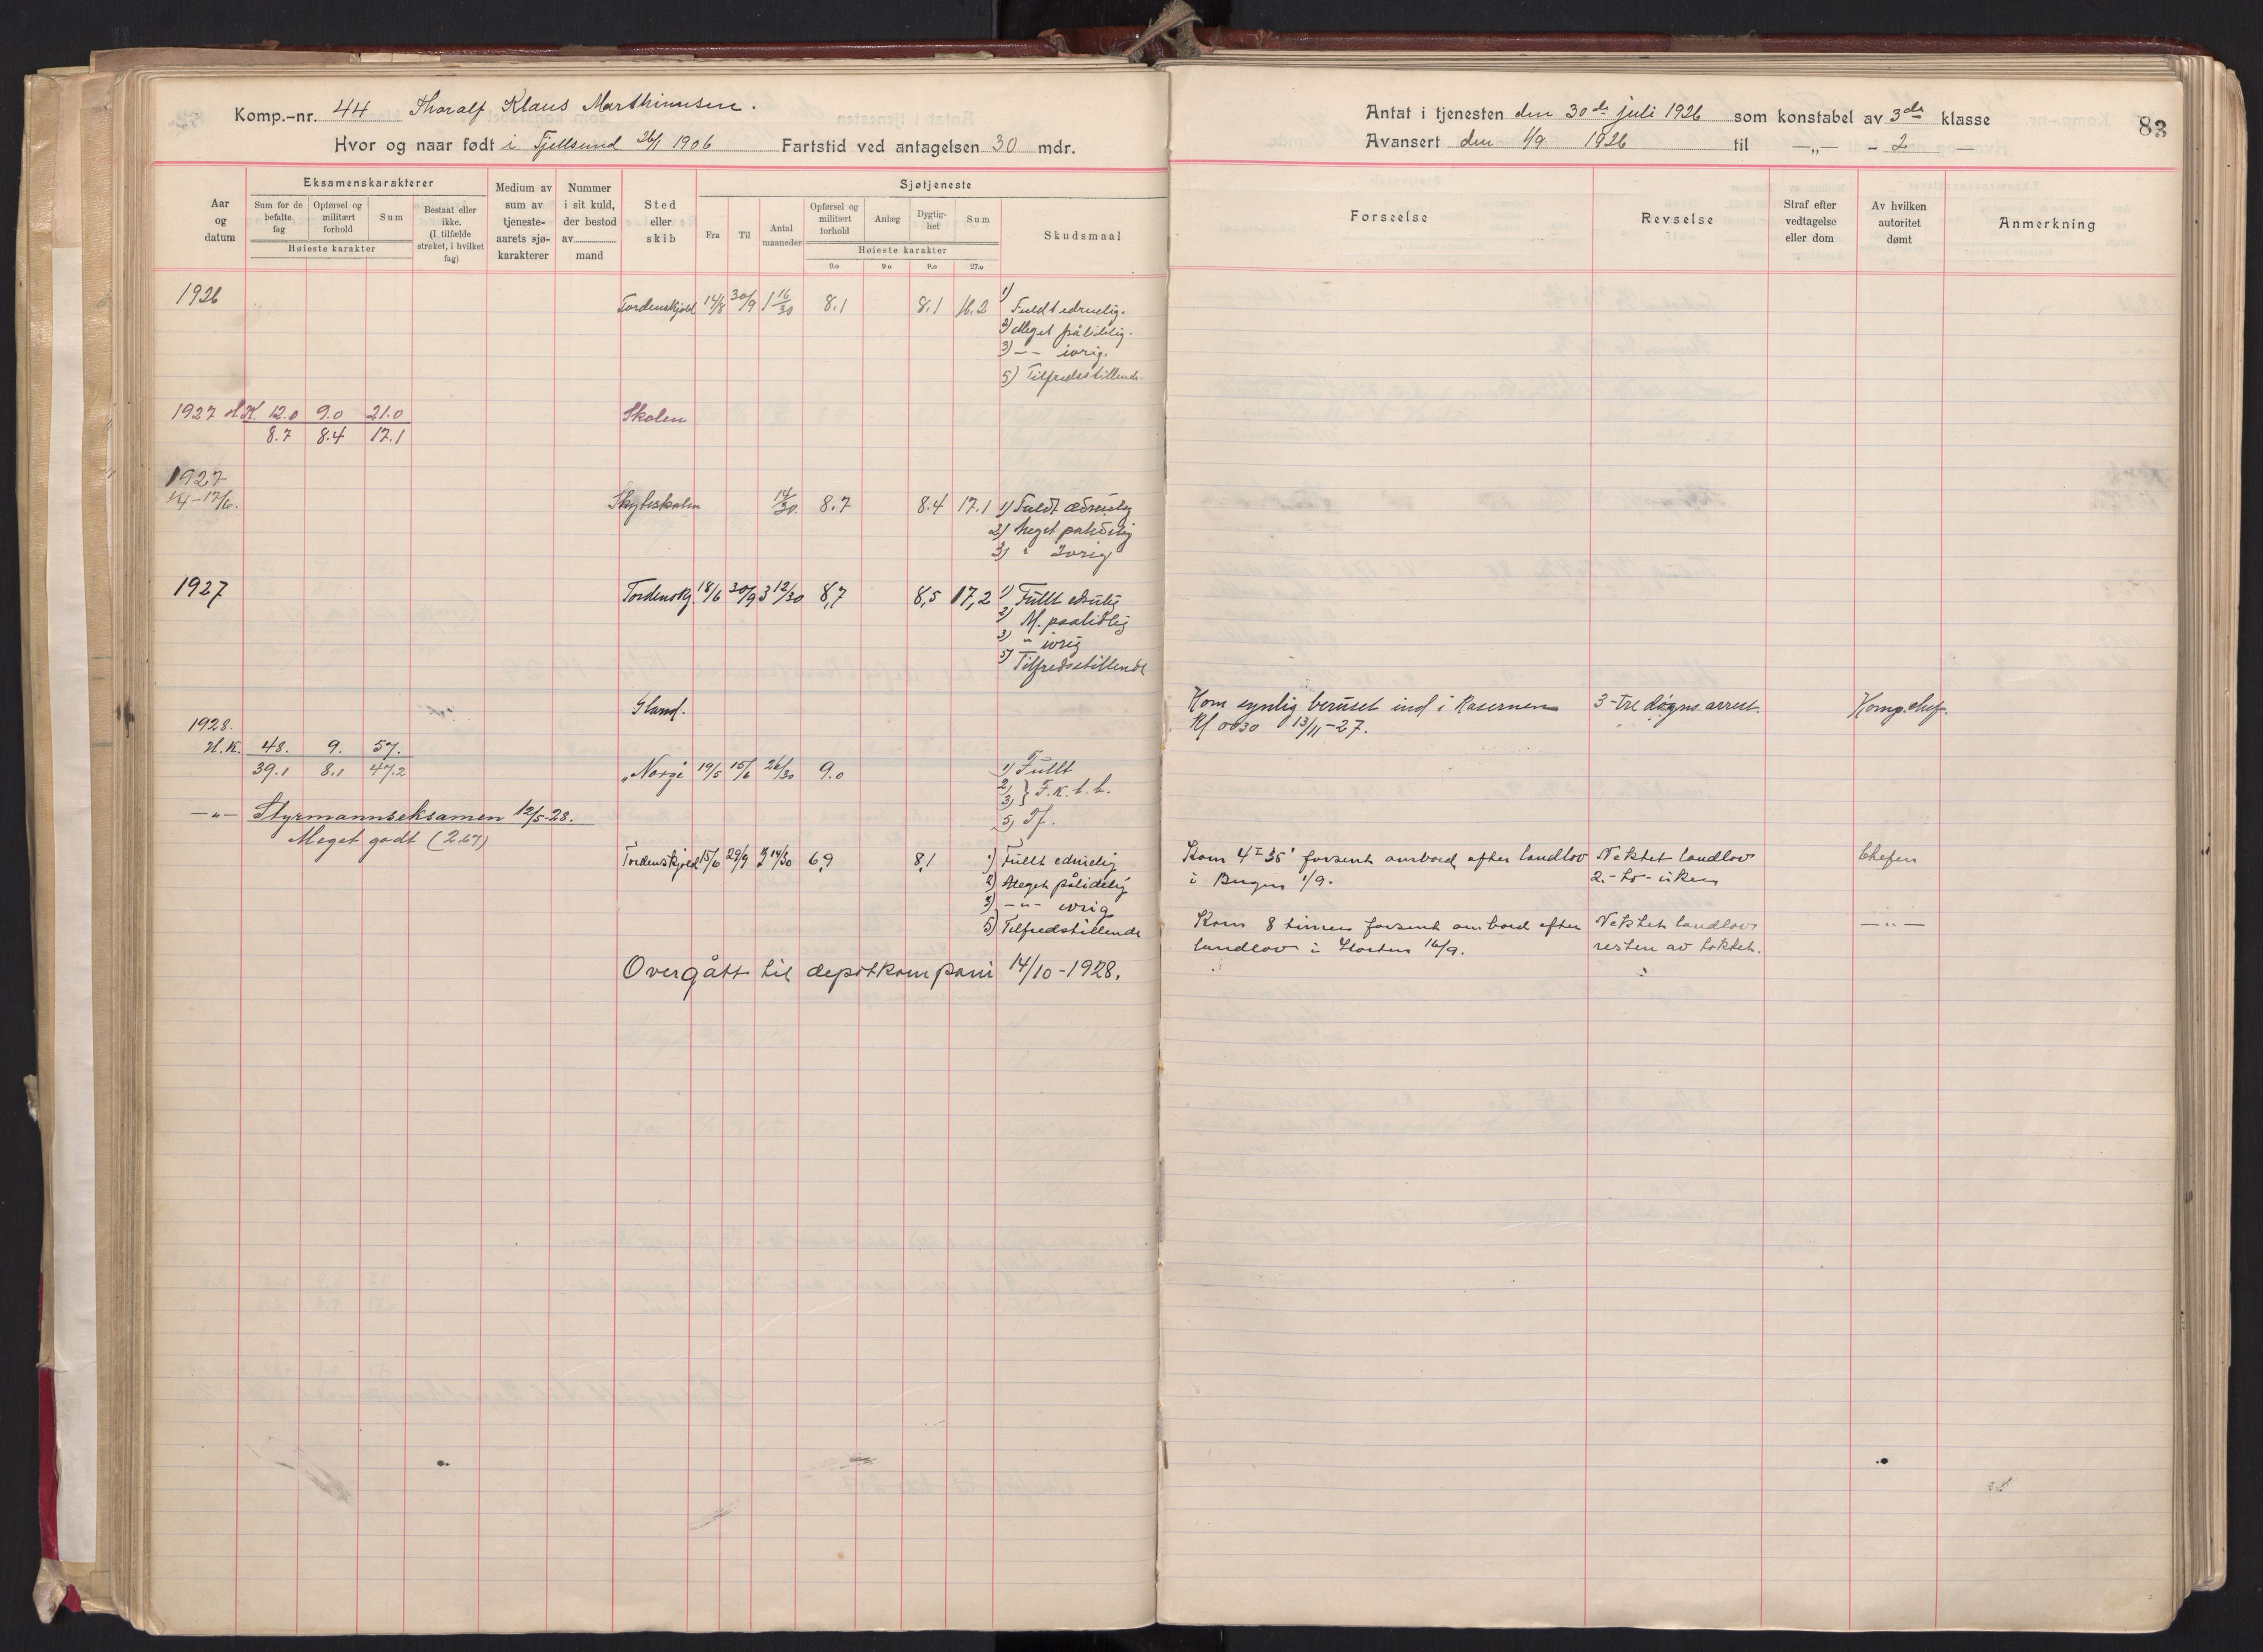 Komp.-nr. 44 Thoralf Klaus Marthinusen.
Hvor og naar født i Tjellsund 26/1 1906 Fartstid ved antagelsen 30 mdr.
Aar og datum
Eksamenskarakterer
Sum for de befalte fag
Opførsel og militært forhold
Sum
Høieste karakter
Bestaat eller ikke. (I tilfælde strøket, i hvilket fag)
Medium av sum av tjeneste-aarets sjø-karakterer
Nummer i sit kuld, der bestod av mand
Sted eller skib
Sjøtjeneste
Fra
Til
Antal maaneder
Opførsel og militært forhold
Anlæg
Dygtig-het
Sum
Høieste karakter
9.0 9.0 9.0 27.0
Skudsmaal
1926 Tordenskjold 14/8 30/9 1 16/30 8.1 8.1 16.2 1) Fuldt edruelig.
2) Meget pålidelig.
3) -- ivrig.
5) Tilfredsstillende.
1927 H.K. 12.0 9.0 21.0 Skolen
8.7 8.4 17.1
1927
Skyteskolen 14/30 8.7 8.4 17.1 1) Fuldt ædruelig
2) Meget palidelig
3) " Ivrig
1927 Tordenskj. 18/6 30/9 3 12/30 8,7 8,5 17,2 1) Fullt edruelig
2) M. paalidlig
3) " ivrig
5) Tilfredsstillende
1928.
H.K. 48. 9. 57.
39.1 8.1 47.2 „Norge 19/5 15/6 26/30 9.0 1) Fullt
2) 3) } F.K.t.b.
5) Tf.
-"- Styrmannseksamen 12/5-28.
Meget godt (2.67)
Tordenskjold 15/6 29/9 3 14/30 6,9 8,1 1) Fullt edruelig
2) Meget pålidelig
3) -"- ivrig
5) Tilfredstillende
Overgått til depotkompani 14/10-1928.
Antat i tjenesten den 30de juli 1926 som konstabel av 3de klasse
83
Avansert den 1/9 1926 til —„— - 2 —
Forseelse
Revselse
Straf efter vedtagelse eller dom
Av hvilken autoritet dømt
Anmerkning
Kom synlig beruset ind i Kasernen 3-tre døgns arrest. Komp.chef.
Kl 0030 13/11-27.
Kom 4 T 35' forsent ombord efter landlov Nektet landlov Chefen
i Bergen 1/9. 2.-to-uker
Kom 8 timer forsent ombord efter Nektet landlov -"-
landlov i Horten 16/9. resten av toktet.